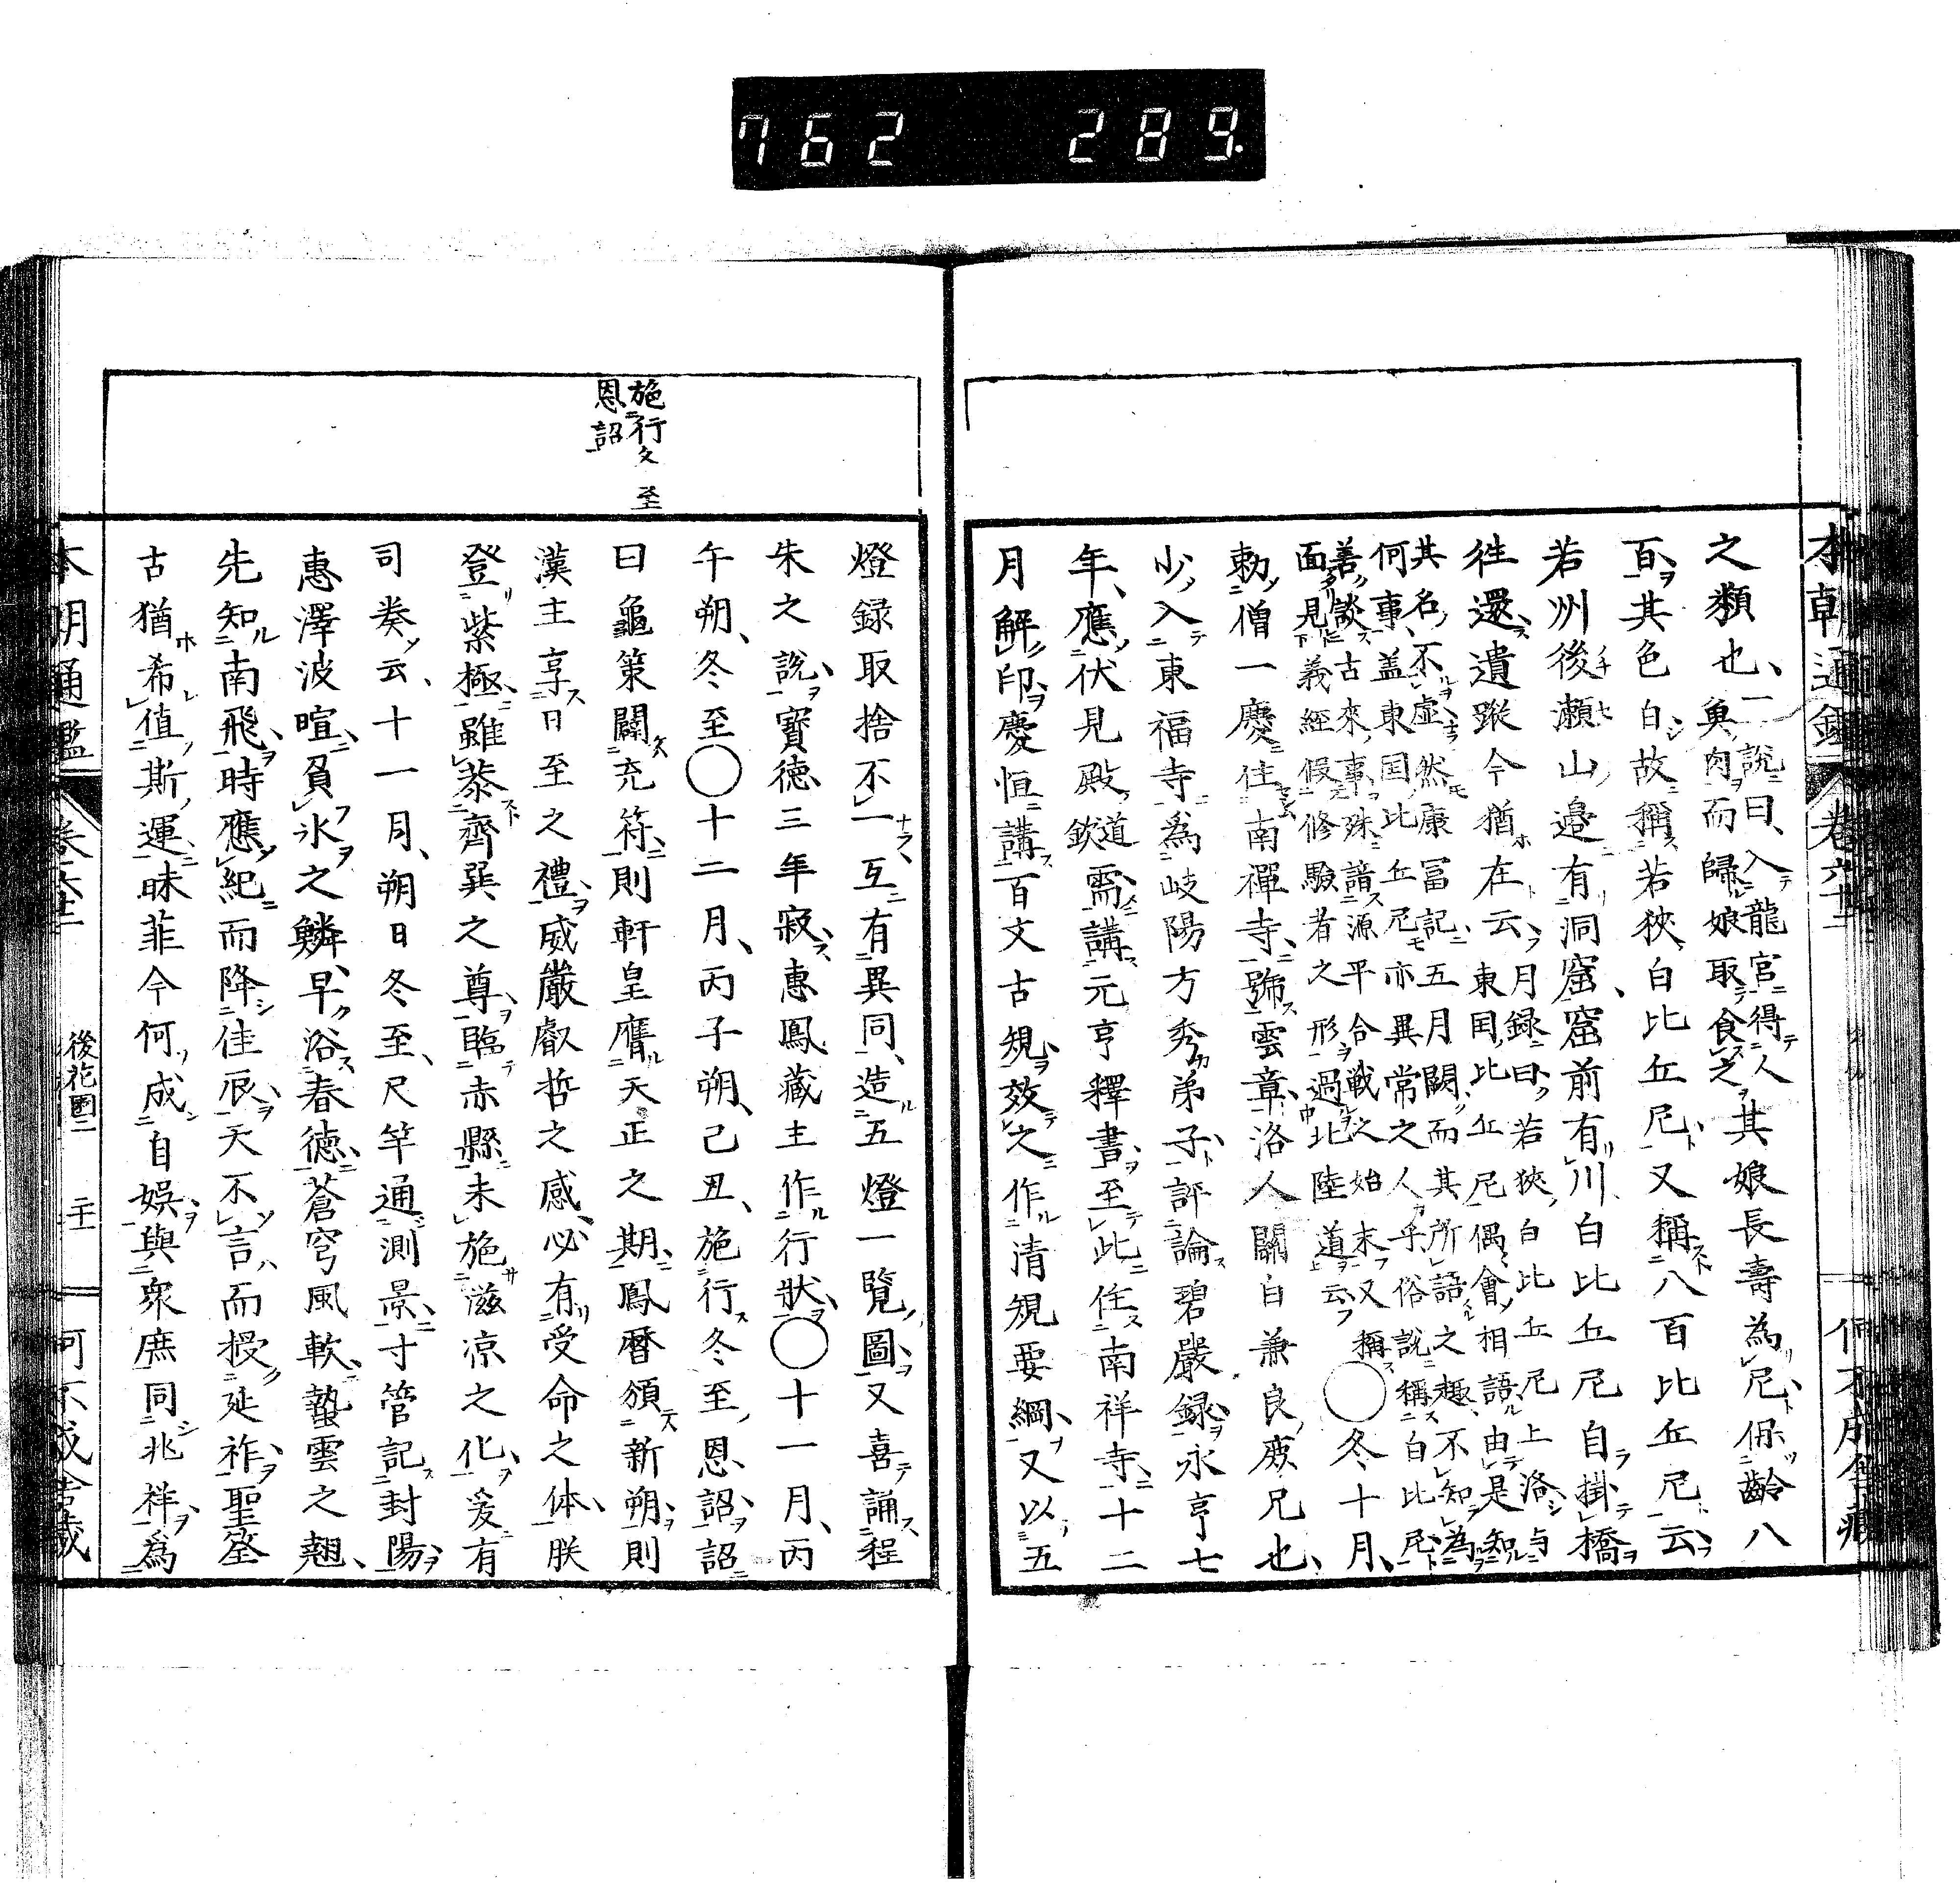 762 289
本朝通鑑 卷六十二
之類也、一說曰、入龍宮得人魚肉而歸娘取食之其娘長壽為尼保齡八
百其色白故稱若狹白比丘尼又稱八百比丘尼云
若州後瀨山邉有洞窟窟前有川白比丘尼自掛橋
徃還遺蹤今猶在云
月録曰若狹白比丘尼上洛与
東国比丘尼偶會相語由是知
其名不虛然康冨記五月闕而其所語之趣不知為
何事盖東国比丘尼亦異常之人乎俗說稱白比丘尼
善談古來事殊諳源平合戰之始末又稱
面見義經假修驗者之形過北陸道云
○冬十月、
勅僧一慶住南禪寺號雲章洛人關白兼良庶兄也、
少入東福寺為岐陽方秀弟子評論碧嚴録永亨七
年、應伏見殿道欽需講元亨釋書至此住南祥寺十二
月解印慶恒講百丈古規效之作清規要綱又以五
燈録取捨不一互有異同造五燈一覽圖又喜誦程
朱之說寶德三年寂惠鳳藏主作行狀○十一月、丙
午朔、冬至○十二月、丙子朔、己丑、施行冬至恩詔詔
曰龜策闢充符則軒皇膺天正之期鳳曆頒新朔則
漢主享日至之禮威嚴叡哲之感必有受命之体朕
登紫極雖忝齊巽之尊臨赤縣未施滋凉之化爰有
司奏云、十一月、朔日冬至、尺竿通測景寸管記封陽
惠澤波暄負氷之鱗早浴春德蒼穹風軟蟄雲之翹、
先知南飛時應紀而降佳辰天不言而授延祚聖筌
古猶希值斯運昧菲今何成自娛與衆庶同兆祥爲
施行文 至
恩詔
後花園二
二十一